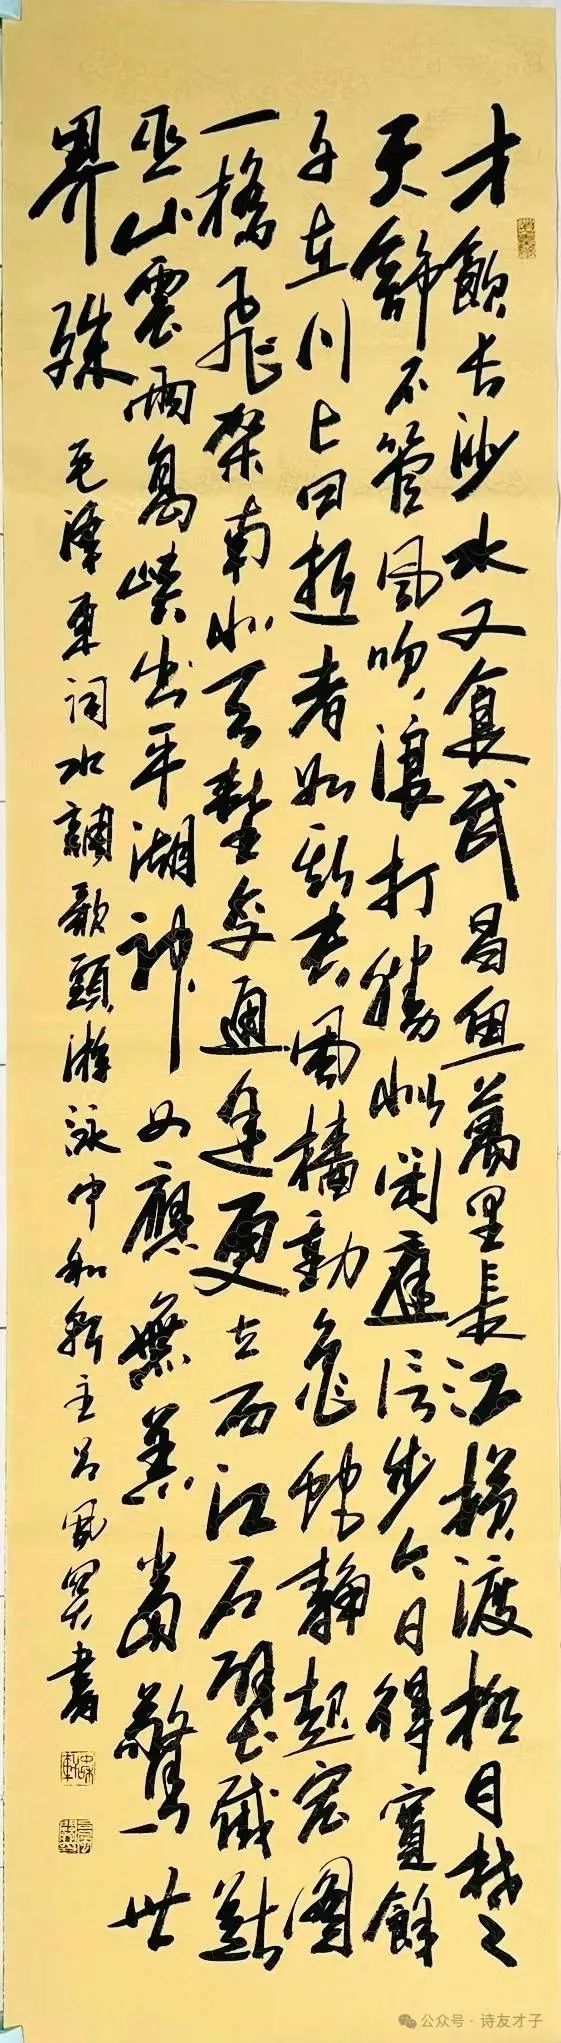 才飲长沙水又食武昌魚萬里長江橫渡極目楚
天舒不管風吹浪打勝似閑庭信步今日得寬餘
子在川上曰逝者如斯夫風檣動龜蛇靜起宏圖
一橋飛架南北天塹變通途更立西江石壁截斷
巫山雲雨高峽出平湖神女應無恙當驚世
界殊
毛澤東詞水調歌頭游泳中和軒主吕書
公众号·诗友才子